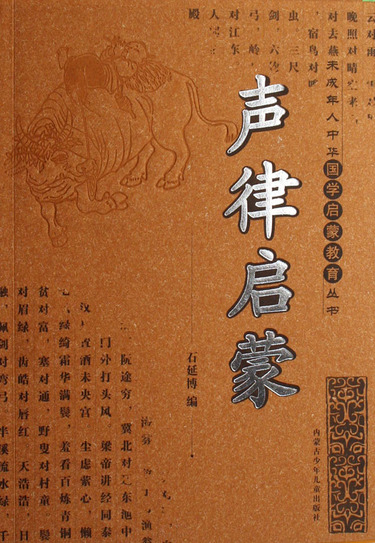 云对雨
晚照对晴空 来
对去燕
宿鸟对
虫 三尺
剑，六
弓，岭
对江东
人
殿
未成年人中华国学启蒙教育丛书
声律启蒙
石延博 编
内蒙古少年儿童出版社
阮途穷，冀北对辽东池中
门外打头风 梁帝讲经同泰
置酒未央宫 尘虑萦心，懒
绮霜华满鬓，羞看百炼青铜
贫对富，塞对通，野叟对村童 鬓
对眉绿 齿皓对唇红 天浩浩 日
融，佩剑对弯弓 半溪流水绿 千